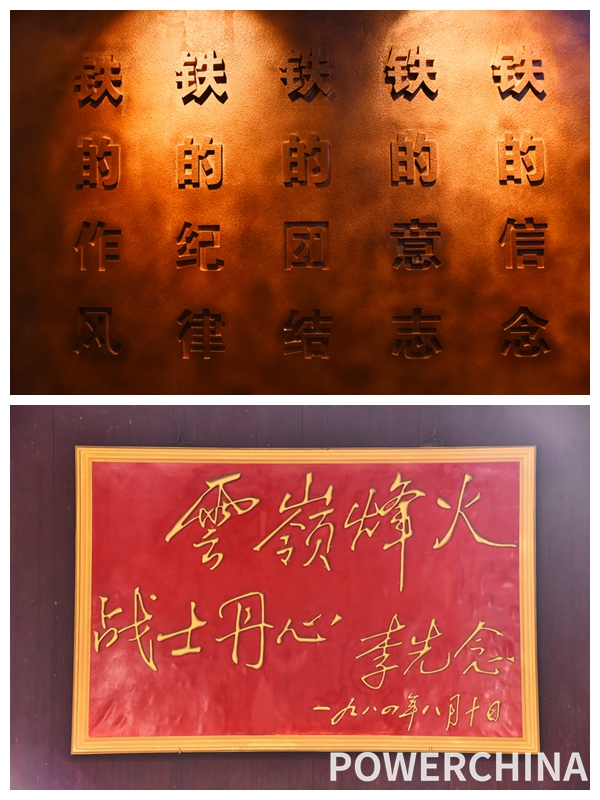 铁的信念
铁的意志
铁的团结
铁的纪律
铁的作风
雲嶺烽火
战士丹心
李先念
一九八〇年八月十日
POWERCHINA